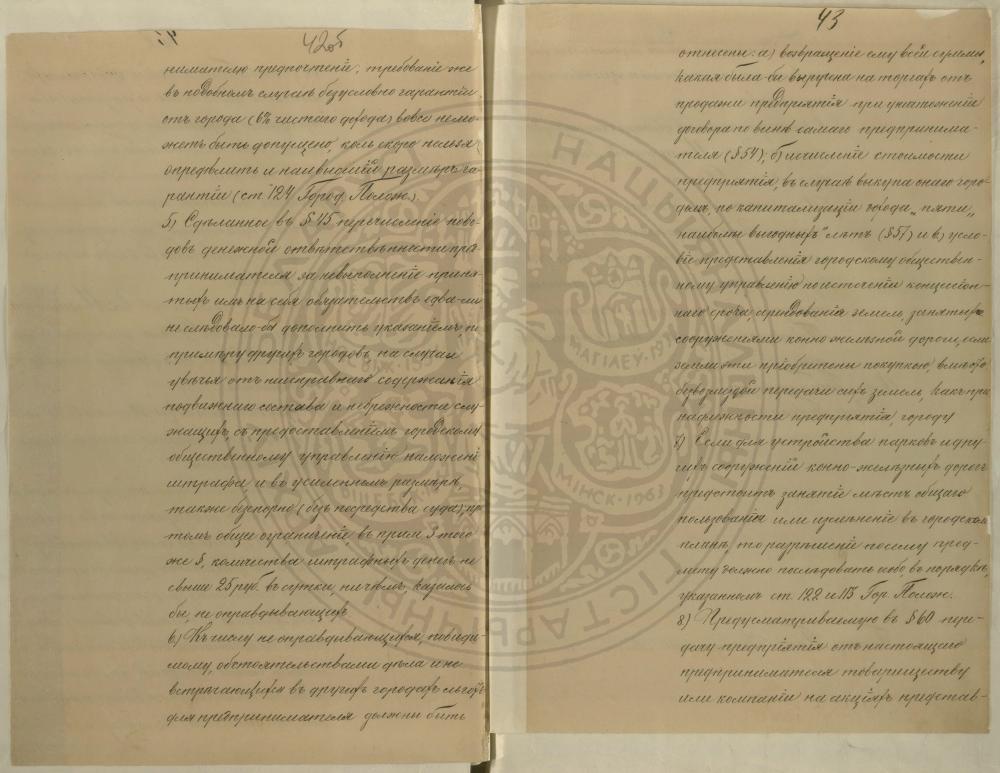 42об
нимателю предпочтенiе; требованiе же
въ подобномъ случаѣ безусловно гарантiи
отъ города (6% чистаго дохода) вовсе не мо-
жетъ быть допущено, коль скоро нельзя
опредѣлить и наивысшiй размѣръ га-
рантiи (ст. 124 Город. Полож.).
5) Сдѣланное въ § 45 перечисленiе пово-
довъ денежной отвѣтственности пред-
принимателя за невыполненiе приня-
тыхъ имъ на себя обязательствъ едва-ли
не слѣдовало-бы дополнить указанiемъ, по
примѣру другихъ городовъ, на случаи
увѣчья отъ неисправнаго содержанiя
подвижнаго состава и небрежности слу-
жащихъ, съ предоставленiемъ городскому
общественному управленiю наложенiе
штрафа и въ усиленномъ размѣрѣ,
также безспорно (безъ посредства суда), при
томъ общее ограниченiе въ прим. 3 того
же §, количества штрафныхъ денегъ не
свыше 25 руб. въ сутки, ничѣмъ, казалось
бы, не оправдывающихъ
6) Къ числу не оправдывающихся, повиди-
мому, обстоятельствами дѣла и не
встрѣчающихся въ другихъ городахъ льготъ
для предпринимателя должны быть
43
отнесены: а) возвращенiе ему всей суммы,
какая была-бы выручена на торгахъ отъ
продажи предпрiятiя при уничтоженiи
договора по винѣ самаго предпринима-
теля (§ 54); б) исчисленiе стоимости
предпрiятiя, въ случаѣ выкупа онаго горо-
домъ, по капитализацiи дохода „пяти„
наиболѣе выгодныхъ" лѣтъ (§ 57) и в) усло-
вiе представленiя городскому обществен-
ному управленiю по истеченiи концессiон-
наго срока, арендованiя земель, занятыхъ
сооруженiями конно желѣзной дороги, если
земли эти прiобрѣтены покупкою, вмѣсто
безвозмездной передачи сихъ земель, какъ при-
надлежности предпрiятiя, городу
7) Если для устройства парковъ и дру-
гихъ сооруженiй конно-желѣзныхъ дорогъ
предстоитъ занятiе мѣстъ общаго
пользованiя или измѣненiе въ городскомъ
планѣ, то разрѣшенiе по сему пред-
мету должно послѣдовать въ порядкѣ,
указанномъ ст. 122 и 115 Гор. Полож.
8) Предусматриваемую въ § 60 пере-
дачу предпрiятiя отъ настоящаго
предпринимателя товариществу
или компанiи на акцiяхъ представ-